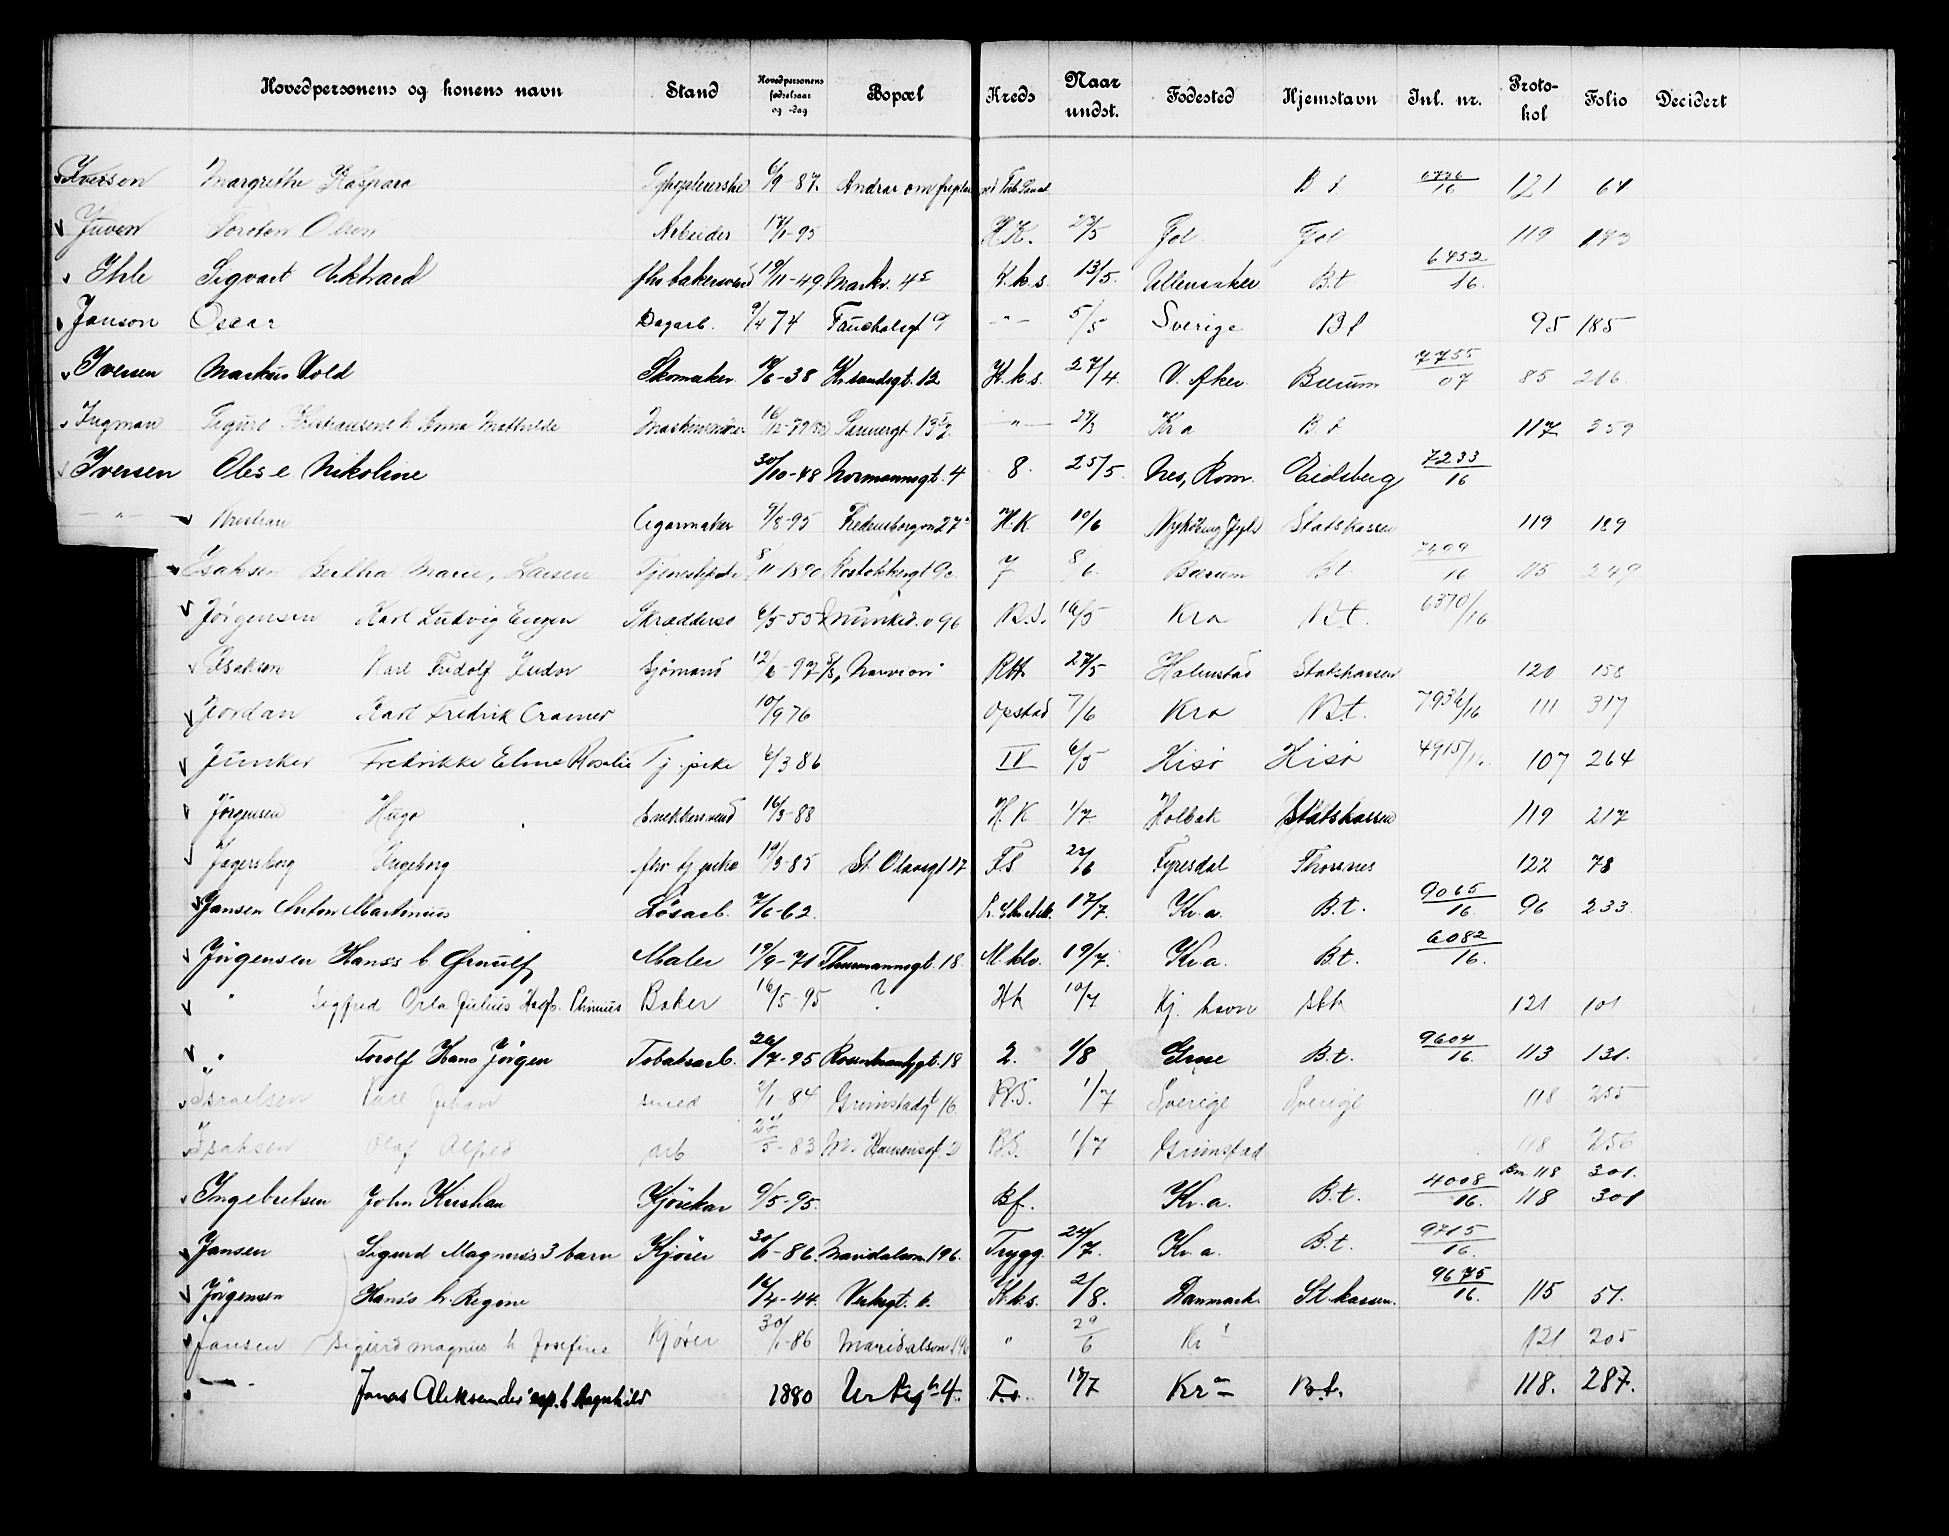 Hovedpersonens og konens navn Stand Hovedpersonens fødselsaar og -dag Bopæl Kreds Naar undst. Fødested Hjemstavn Inl. nr. Protokol Folio Decidert
Iversen Margrethe Kaspara 6/9-87. B t 16 121 64
Juven Torsten Olsen Arbeider 17/1-95 H.K. 23/5 Fol Fol 119 183
Ihle Sigvart Ekhard fhv bakersvend 19/11-49 Markv. 45 K.k.s. 13/5. Ullensaker B.t. 6452/16.
Janson Oscar Dagarb. 9/4 74 Fauchalsgt 9 -"- 5/5 Sverige Bt 95 185
Iversen Markus Vold Skomaker 18/6-38 Kr.sandsgt. 12 K.k.s. 27/4. V. Aker Bærum 7755/07 85 216.
Ingman Sigurd Kristiansen h. Anna Mathilde Sannergt 13 -"- 29/3 Kra B.t 117 359
Iversen Olse Nikoline 30/10-48 Normannsgt. 4 8. 25/5. Nes, Rom. Eidsberg 7233/16
-"- Kristian Cigarmaker 9/8-95 27 H.K 10/6 Nykøbing Jyll. Statskassen 119 189
Isaksen Bertha Marie, Larsen Tjenestepike 8/11 1890 7 8/6. Bærum Bt. 7409/16 115 249
Jørgensen Karl Ludvig Eugen Skrædders. 6/5-55 Munked.v 96 B.S. 16/5 Kra Bt. 6370/16
Isaksen Karl Fridolf Judor Sjømand 12/6-97 S/S, Narvion Rtt. 27/5 Halmstad Statskassen 120 158
Jordan Karl Fredrik Cramer 10/9 76 Opstad 7/6 Kra Bt. 7936/16 111 317
Juncker Fredrikke Eline Rosalie Tj. pike 6/3 86 IV 6/5 Hisø Hisø 4915/16. 107 264
Jørgensen Hugo Snekkersvend 16/3-88 H.K 1/7 Holbæk Statskassen 119 217
Jagersborg Ingeborg fhv tj. pike 19/3-85 St. Olavsgt 17 FS 22/6 Fyresdal 122 78
Jansen Anton Martinius Løsarb. 7/6-62. 17/7. Kr.a. B.t. 9065/16. 96 233.
Jørgensen Hans's h. Ørnulf Maler 19/9-71 Thurmannsgt. 18. M.klv. 19/7. Kr.a. B.t. 6082/16.
" Sigfred Orla Julius Baker 16/5-95 ? Hk 10/7 Kj. havn stk 121 101
" Torolf Hans Jørgen Tobaksarb. 26/7-95 18 2. 1/8 Grue B.t. 9604/16. 113 131.
Israelsen Karl Johan smed 2/1-84 Grimstadgt 16. B.S. 1/7 Sverige Sverige 118 255
Isaksen Olaf Alfred arb. 27/5-83 M. Hansensgt. 2 B.S. 1/7 Grimstad 118 256
Bm 118 301.
Ingebretsen John Kristian Kjørekar 6/5-95. Bf. Kr.a. B.t. 4008/16. 118 301
Jansen Sigurd Magnus's 3 barn Kjører 30/1-86. Maridalsvn. 196. Trygg. 24/7. Kr.a. B.t. 9715/16.
Jørgensen Hans's h. Regine 14/4-44. Verksgt. 6. K.k.s. 2/8. Danmark. St.kassen. 9675/16. 115 51.
Jansen Sigurd Magnus h Josefine Kjører 30/1-86 Maridalsvn. 196 " 29/6 Kr 121 205
-"- Jonas Aleksander h Ragnhild 1880 4. F.s. 18/7 Kra B.t. 118. 287.